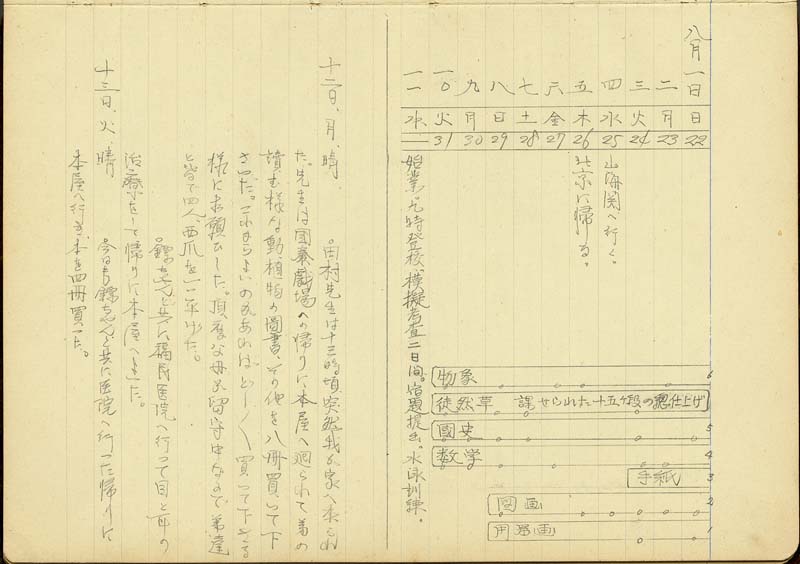 八月一日 二 三 四 五 六 七 八 九 一〇 一一
日 月 火 水 木 金 土 日 月 火 水
22 23 24 25 26 27 28 29 30 31 一
山海関へ行く。
北京に帰る。
始業、九時登校、模擬考査二日間。宿題提出。水泳訓練。
物象 6
徒然草 課せられた十五ヶ段の認仕上げ
國史 5
数学 4
手紙 3
図画 2
用器画 1
十二日、月、晴 田村先生は十三時頃突然我が家へ来られ
た。先生は國泰戯場への帰りに本屋へ廻られて弟の
讀む様な動植物の圖書、その他を八冊買って下
さった。これからよいのがあればどし〱買って下さる
様にお願ひした。頂度父母が留守中なので弟達
と皆で四人、西爪を一平げた。
ちゃんと共に福民医院へ行って目と耳の
治療をして帰りに本屋へよった。
十三日、火、晴 今日もちゃんと共に医院へ行った帰りに
本屋へ行き、本を四冊買った。